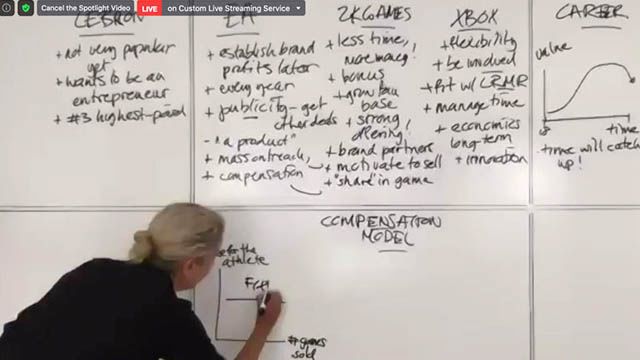 Cancel the Spotlight Video
LIVE on Custom Live Streaming Service
LEBRON
+ not very popular
yet
+ wants to be an
entrepreneur
+ #3 highest-paid
EA
+ establish brand
profits later
+ every year
+ publicity - get
other deals
- "a product"
+ mass outreach
+ compensation
2KGAMES
+ less time,
more money!
+ bonus
+ grow fan
base
+ strong
offering!
+ brand partners
+ motivate to sell
+ "share" in game
XBOX
+ flexibility
+ be involved
+ fit w/ LRMR
+ manage time
+ economics
long term
+ innovation
CAREER
value
time
time will catch
up!
COMPENSATION
MODEL
for the
athlete
# games
sold